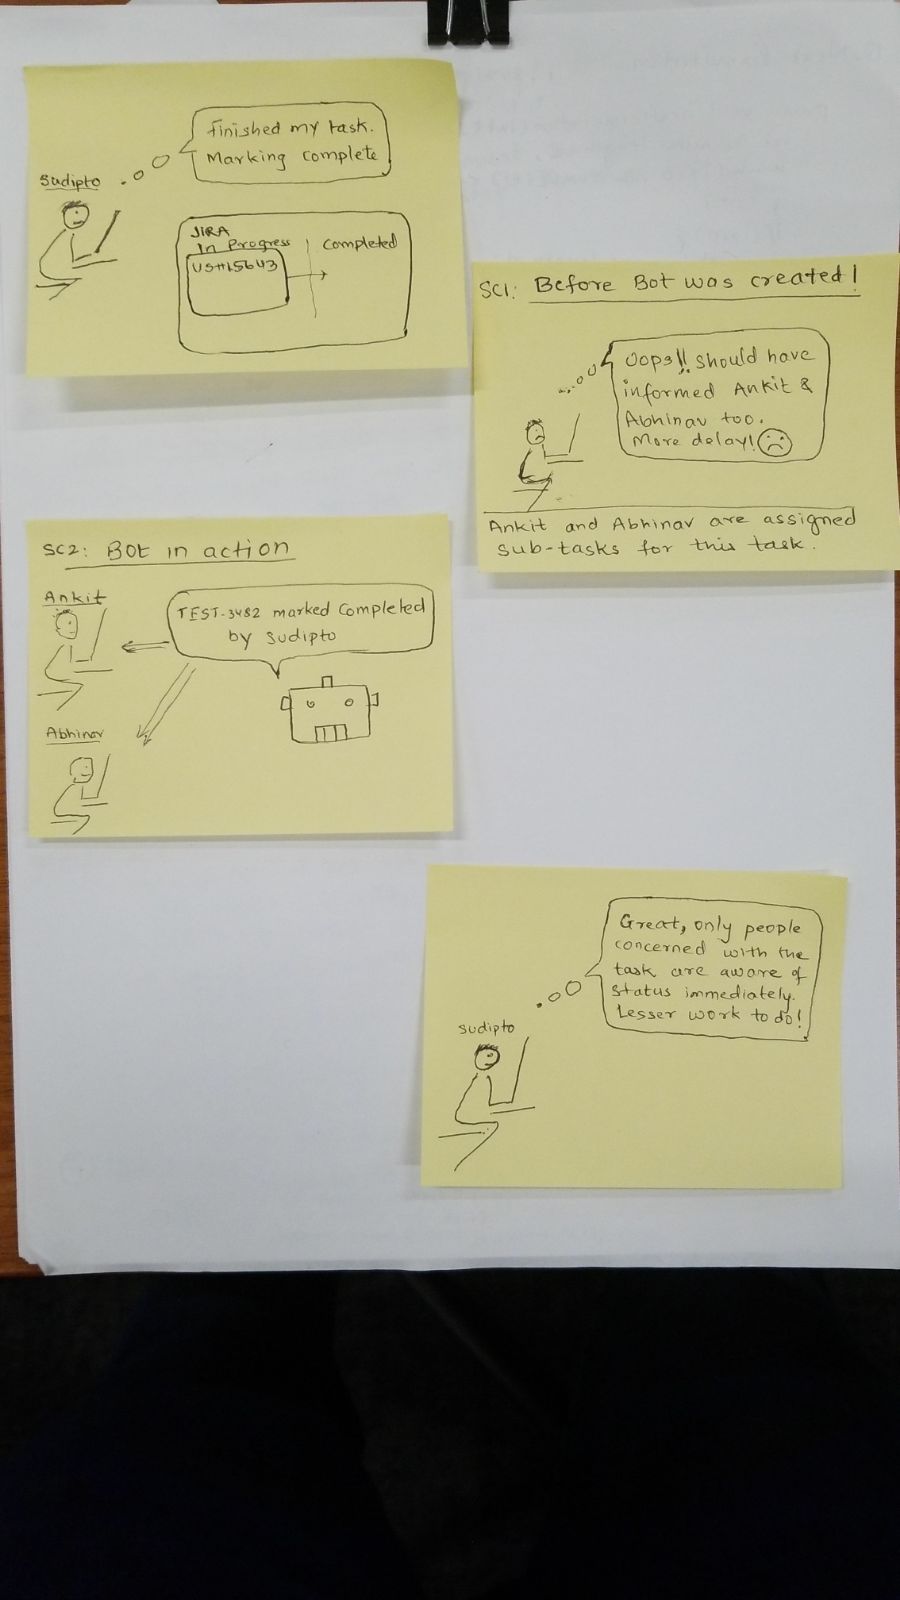 Finished my task.
Marking complete
Sudipto
JIRA
In Progress
Completed
US#15643
SC1: Before Bot was created!
Oops!! should have
informed Ankit &
Abhinav too.
More delay!
Ankit and Abhinav are assigned
sub-tasks for this task.
SC2: Bot in action
Ankit
TEST-3482 marked completed
by Sudipto
Abhinav
Great, only people
concerned with the
task are aware of
status immediately.
Lesser work to do!
Sudipto